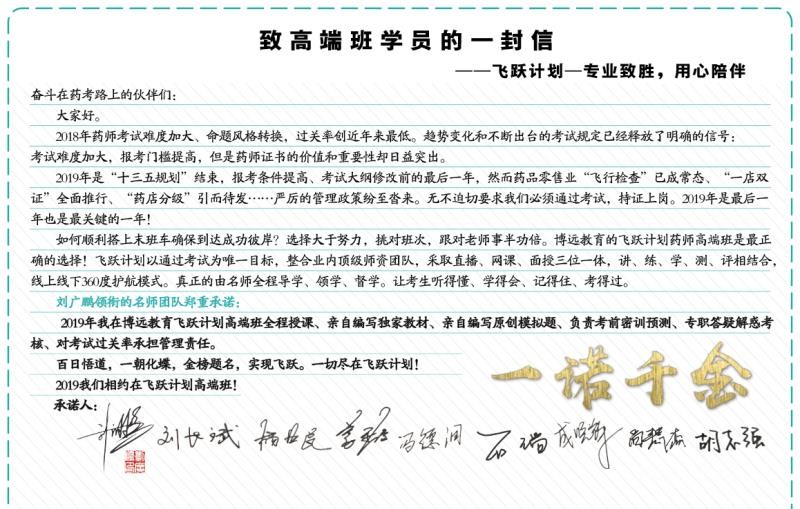 致高端班学员的一封信
——飞跃计划—专业致胜，用心陪伴
奋斗在药考路上的伙伴们：
大家好。
2018年药师考试难度加大、命题风格转换，过关率创近年来最低。趋势变化和不断出台的考试规定已经释放了明确的信号：
考试难度加大，报考门槛提高，但是药师证书的价值和重要性却日益突出。
2019年是“十三五规划”结束，报考条件提高、考试大纲修改前的最后一年，然而药品零售业“飞行检查”已成常态、“一店双
证”全面推行、“药店分级”引而待发……严厉的管理政策纷至沓来。无不迫切要求我们必须通过考试，持证上岗。2019年是最后一
年也是最关键的一年！
如何顺利搭上末班车确保到达成功彼岸？选择大于努力，挑对班次，跟对老师事半功倍。博远教育的飞跃计划药师高端班是最正
确的选择！飞跃计划以通过考试为唯一目标，整合业内顶级师资团队，采取直播、网课、面授三位一体，讲、练、学、测、评相结合，
线上线下360度护航模式。真正的由名师全程导学、领学、督学。让考生听得懂、学得会、记得住、考得过。
刘广鹏领衔的名师团队郑重承诺：
2019年我在博远教育飞跃计划高端班全程授课、亲自编写独家教材、亲自编写原创模拟题、负责考前密训预测、专职答疑解惑考
核、对考试过关率承担管理责任。
百日悟道，一朝化蝶，金榜题名，实现飞跃。一切尽在飞跃计划！
2019我们相约在飞跃计划高端班！
一诺千金
承诺人：
刘长斌 冯德润 石端 胡志强